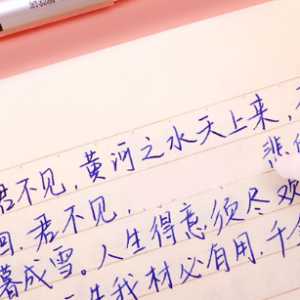 君不见,黄河之水天上来,
回.君不见, 悲
暮成雪。人生得意须尽欢
生我材必有用,千